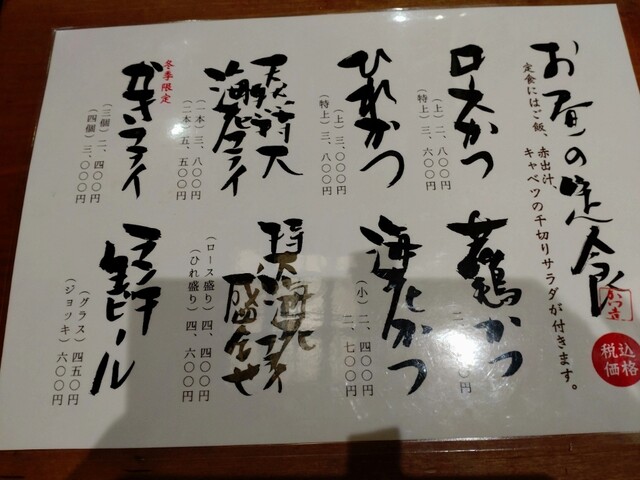 お昼の定食
かつ吉
税込
価格
定食にはご飯、赤出汁、
キャベツの千切りサラダが付きます。
ロースかつ
(上)二、八〇〇円
(特上)三、六〇〇円
若鶏かつ
円
ひれかつ
(上)三、〇〇〇円
(特上)三、八〇〇円
海老かつ
(小)二、四〇〇円
二、七〇〇円
天然特大
海老フライ
(一本)三、八〇〇円
(二本)五、五〇〇円
特大海老フライ
盛合せ
(ロース盛り)四、四〇〇円
(ひれ盛り)四、六〇〇円
冬季限定
かきフライ
(三個)二、四〇〇円
(四個)三、〇〇〇円
ランチ
生ビール
(グラス)四五〇円
(ジョッキ)六〇〇円